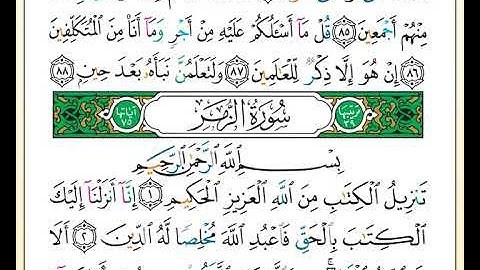 مِنْهُمْ أَجْمَعِينَ ٨٥ قُلْ مَآ أَسْـَٔلُكُمْ عَلَيْهِ مِنْ أَجْرٍ وَمَآ أَنَا۠ مِنَ ٱلْمُتَكَلِّفِينَ
٨٦ إِنْ هُوَ إِلَّا ذِكْرٌ لِّلْعَـٰلَمِينَ ٨٧ وَلَتَعْلَمُنَّ نَبَأَهُۥ بَعْدَ حِينٍۭ ٨٨
ترتيبها ٣٩ سُورَةُ الزُّمَر آياتها ٧٥
بِسْمِ ٱللَّهِ ٱلرَّحْمَـٰنِ ٱلرَّحِيمِ
تَنزِيلُ ٱلْكِتَـٰبِ مِنَ ٱللَّهِ ٱلْعَزِيزِ ٱلْحَكِيمِ ١ إِنَّآ أَنزَلْنَآ إِلَيْكَ
ٱلْكِتَـٰبَ بِٱلْحَقِّ فَٱعْبُدِ ٱللَّهَ مُخْلِصًا لَّهُ ٱلدِّينَ ٢ أَلَا